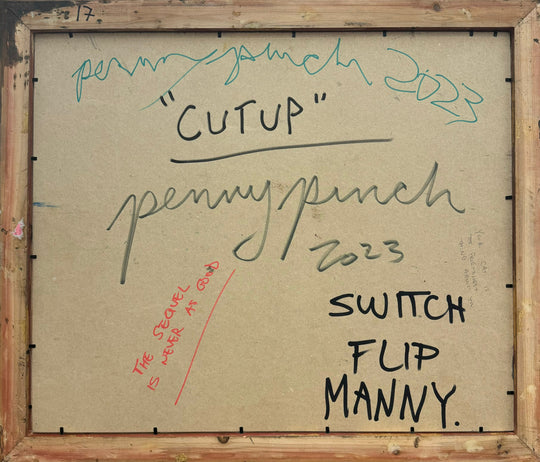 17
pennypinch 2023
"CUTUP"
pennypinch
2023
THE SEQUEL
IS NEVER AS GOOD
SWITCH
FLIP
MANNY.